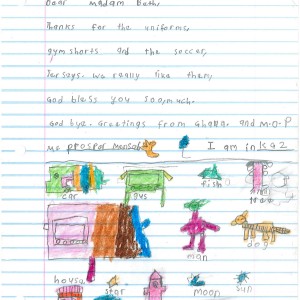 Dear Madam Beth,
Thanks for the uniforms,
gym shorts and the soccer,
Jerseys. we really like them,
God bless you soo,much.
God bye. Greetings from Ghana. and M.O.P
Me prosper mensah I am in KG2
car fish
man dog
house star moon sun